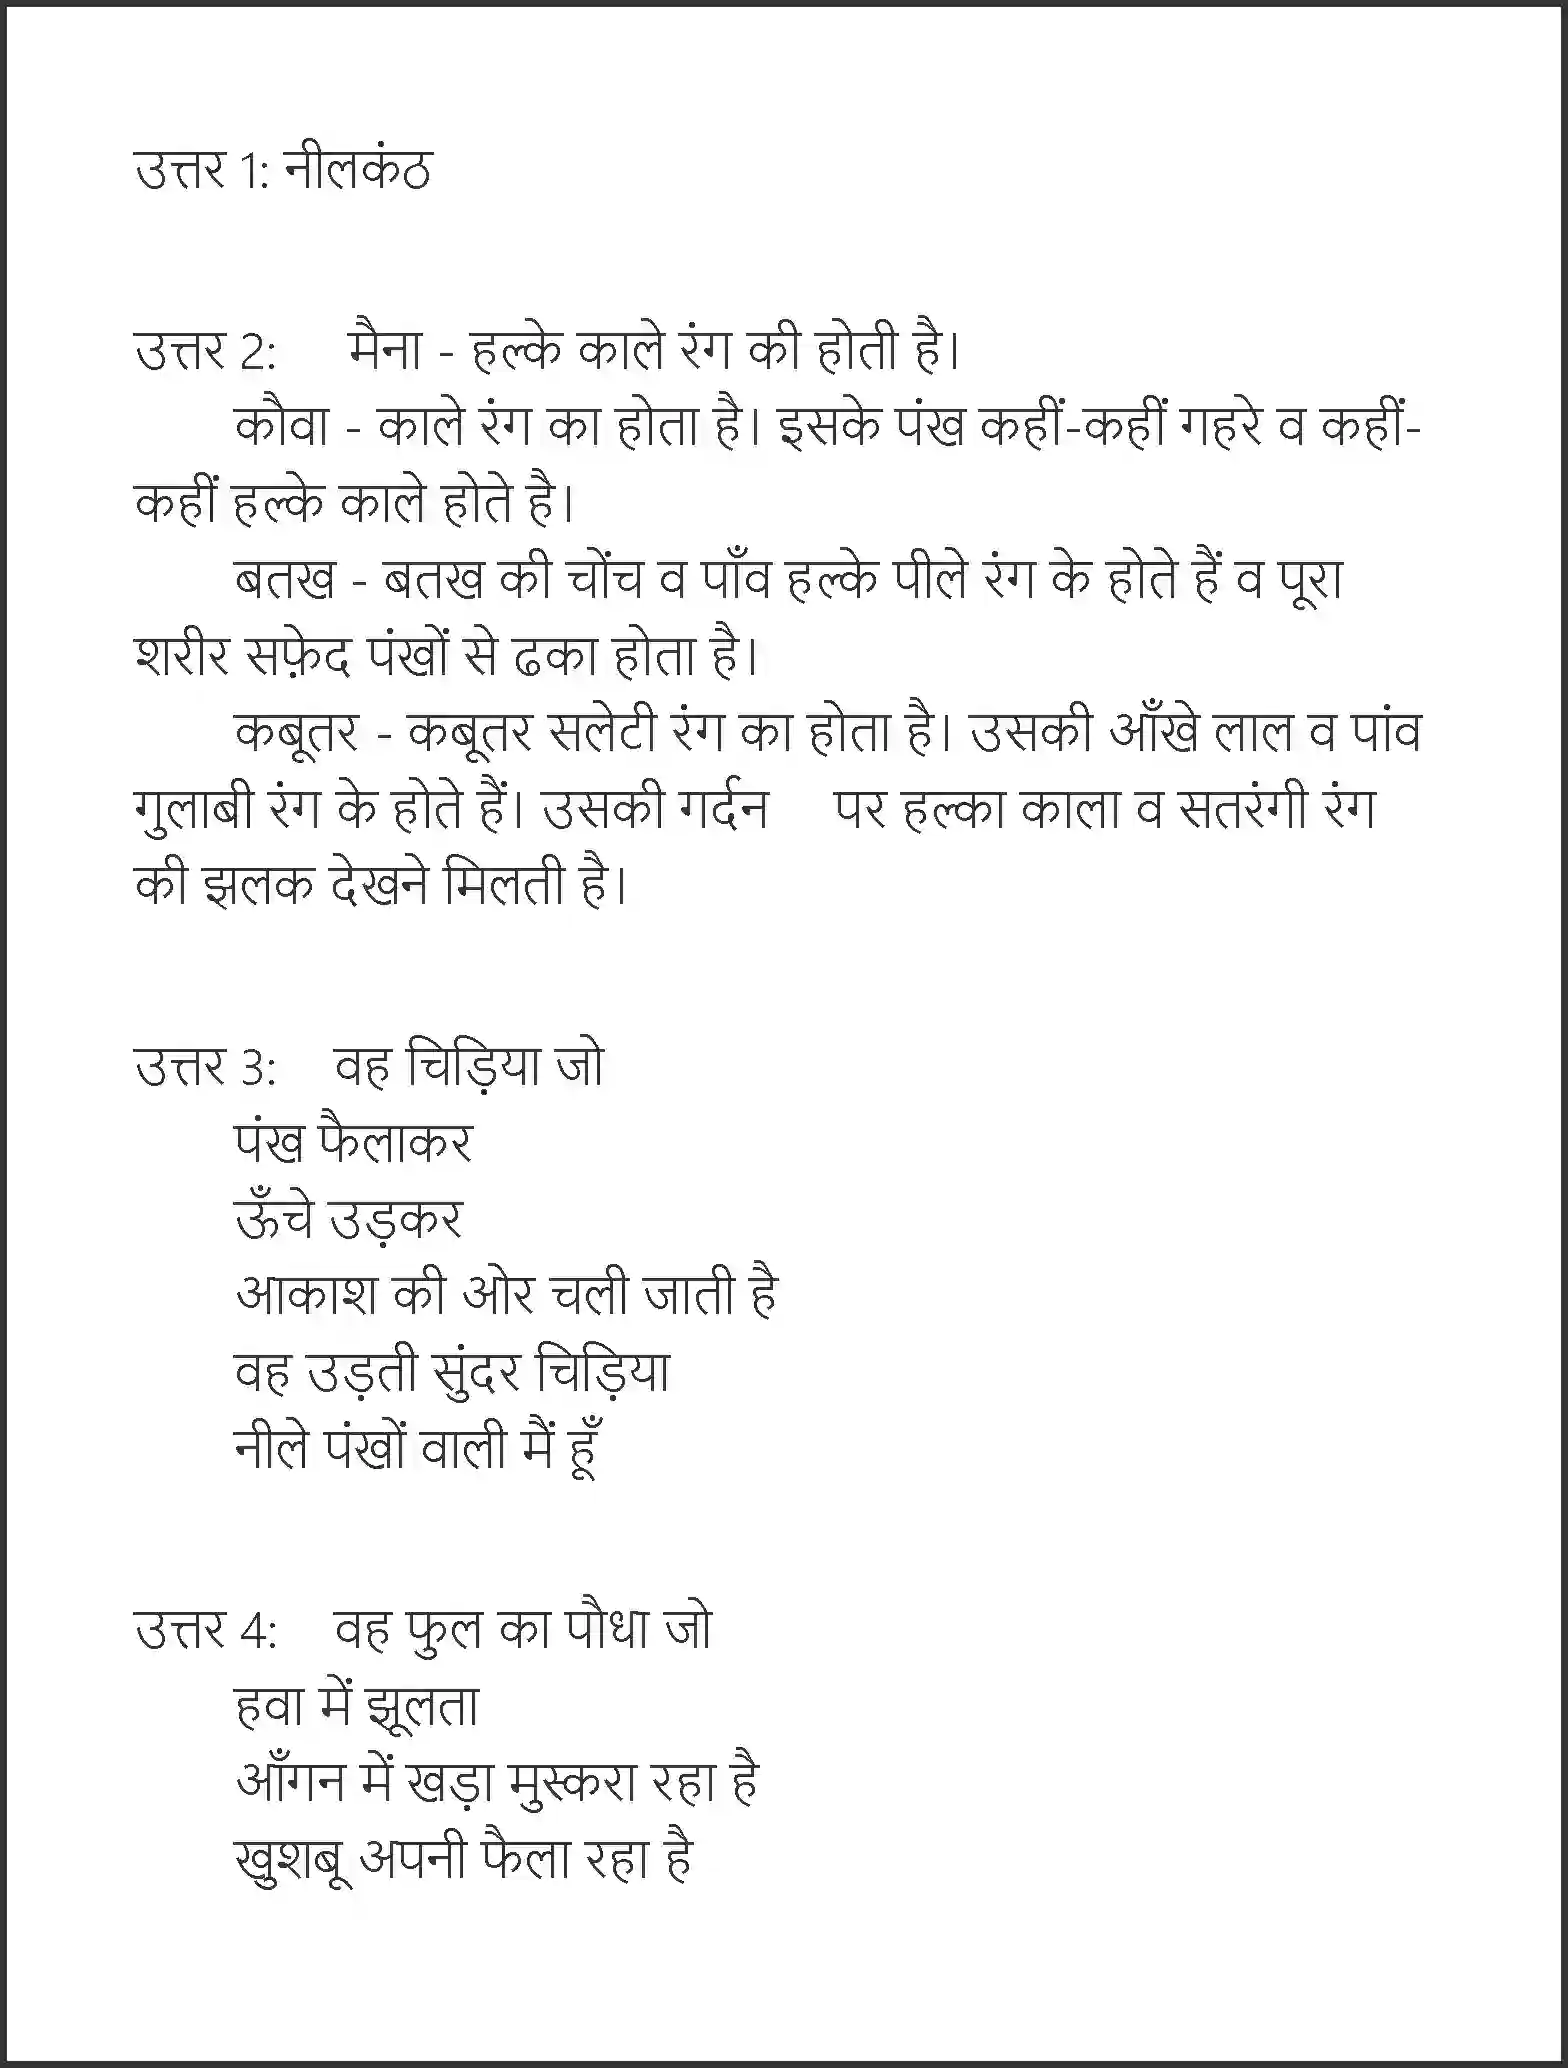 उत्तर 1: नीलकंठ
उत्तर 2: मैना - हल्के काले रंग की होती है।
कौवा - काले रंग का होता है। इसके पंख कहीं-कहीं गहरे व कहीं-
कहीं हल्के काले होते है।
बतख - बतख की चोंच व पाँव हल्के पीले रंग के होते हैं व पूरा
शरीर सफ़ेद पंखों से ढका होता है।
कबूतर - कबूतर सलेटी रंग का होता है। उसकी आँखे लाल व पांव
गुलाबी रंग के होते हैं। उसकी गर्दन पर हल्का काला व सतरंगी रंग
की झलक देखने मिलती है।
उत्तर 3: वह चिड़िया जो
पंख फैलाकर
ऊँचे उड़कर
आकाश की ओर चली जाती है
वह उड़ती सुंदर चिड़िया
नीले पंखों वाली मैं हूँ
उत्तर 4: वह फुल का पौधा जो
हवा में झूलता
आँगन में खड़ा मुस्करा रहा है
खुशबू अपनी फैला रहा है